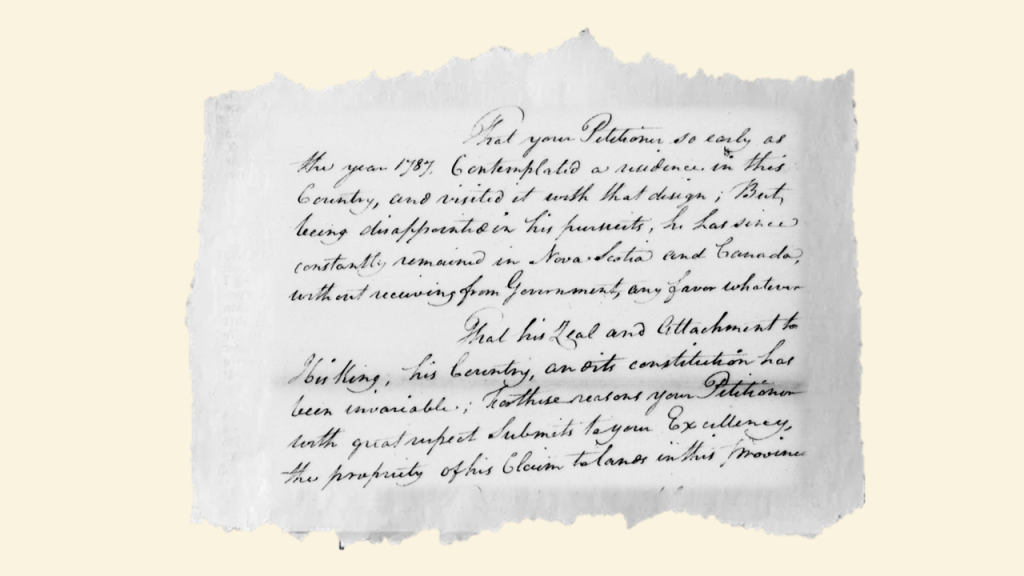 That your Petitioner so early as
the year 1787. Contemplated a residence in this
Country, and visited it with that design; But,
being disappointed in his pursuits, he has since
constantly remained in Nova Scotia and Canada,
without receiving from Government, any favor whatever
That his Zeal and Attachment to
His King, his Country, and its constitution has
been invariable.; For these reasons your Petitioner
with great respect Submits to your Excellency,
the propriety of his Claim to lands in this province